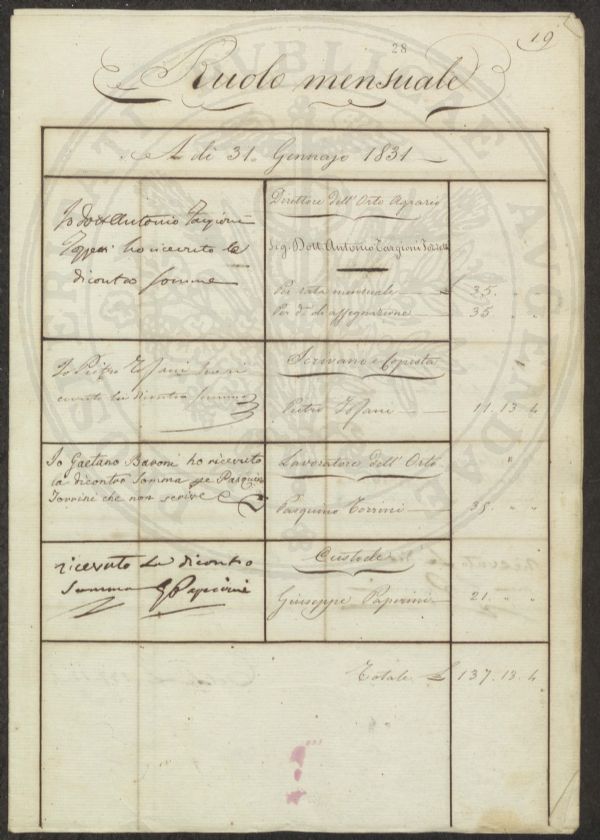 28
19
Ruolo mensuale
A dì 31. Gennajo 1831
Io Dott Antonio Targioni
Tozzetti ho ricevuto la
dicontro somma
Direttore dell'Orto Agrario
Sig. Dott. Antonio Targioni Tozzetti
Per rata mensuale £ 35. " "
Per dì di assegnazione 35 " "
Io Pietro Tofani ho ri
cevuto la dicontro somma
Scrivano e Copista
Pietro Tofani 11. 13. 4
Io Gaetano Baroni ho ricevuto
la dicontro Somma pe Pasquino
Torrini che non scrive
Lavoratore dell'Orto
Pasquino Torrini 35. " "
ricevuto La dicontro
Somma G Paperini
Custode
Giuseppe Paperini 21. " "
Totale £ 137. 13. 4